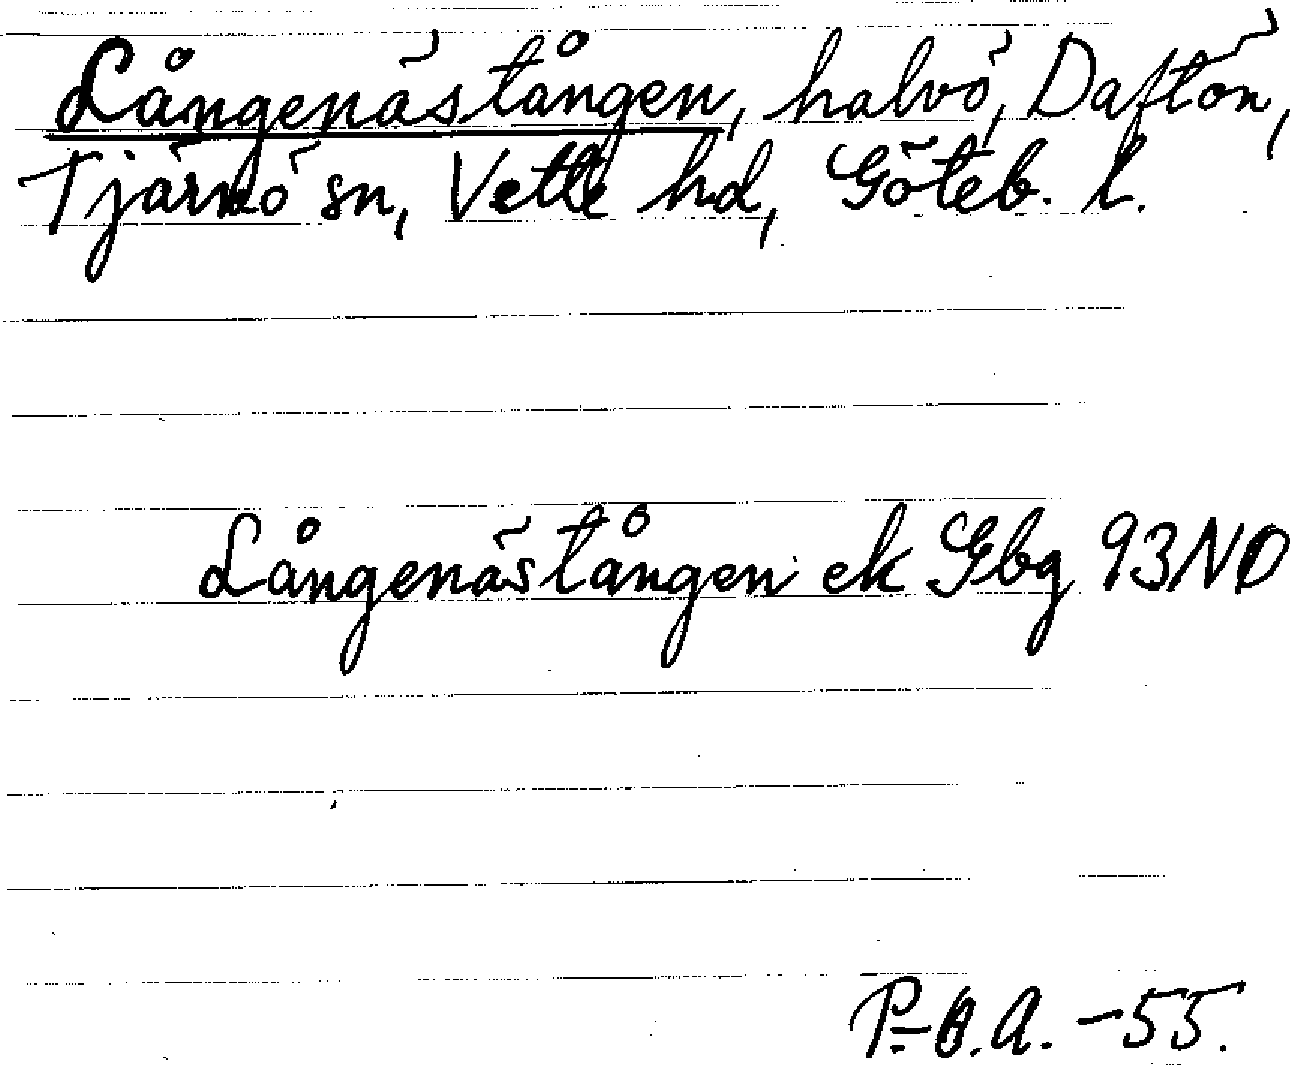 Långenästången, halvö, Daftön,
Tjärnö sn, Vette hd, Göteb. l.
Långenästången ek Gbg 93NO
P.-O.A. -55.